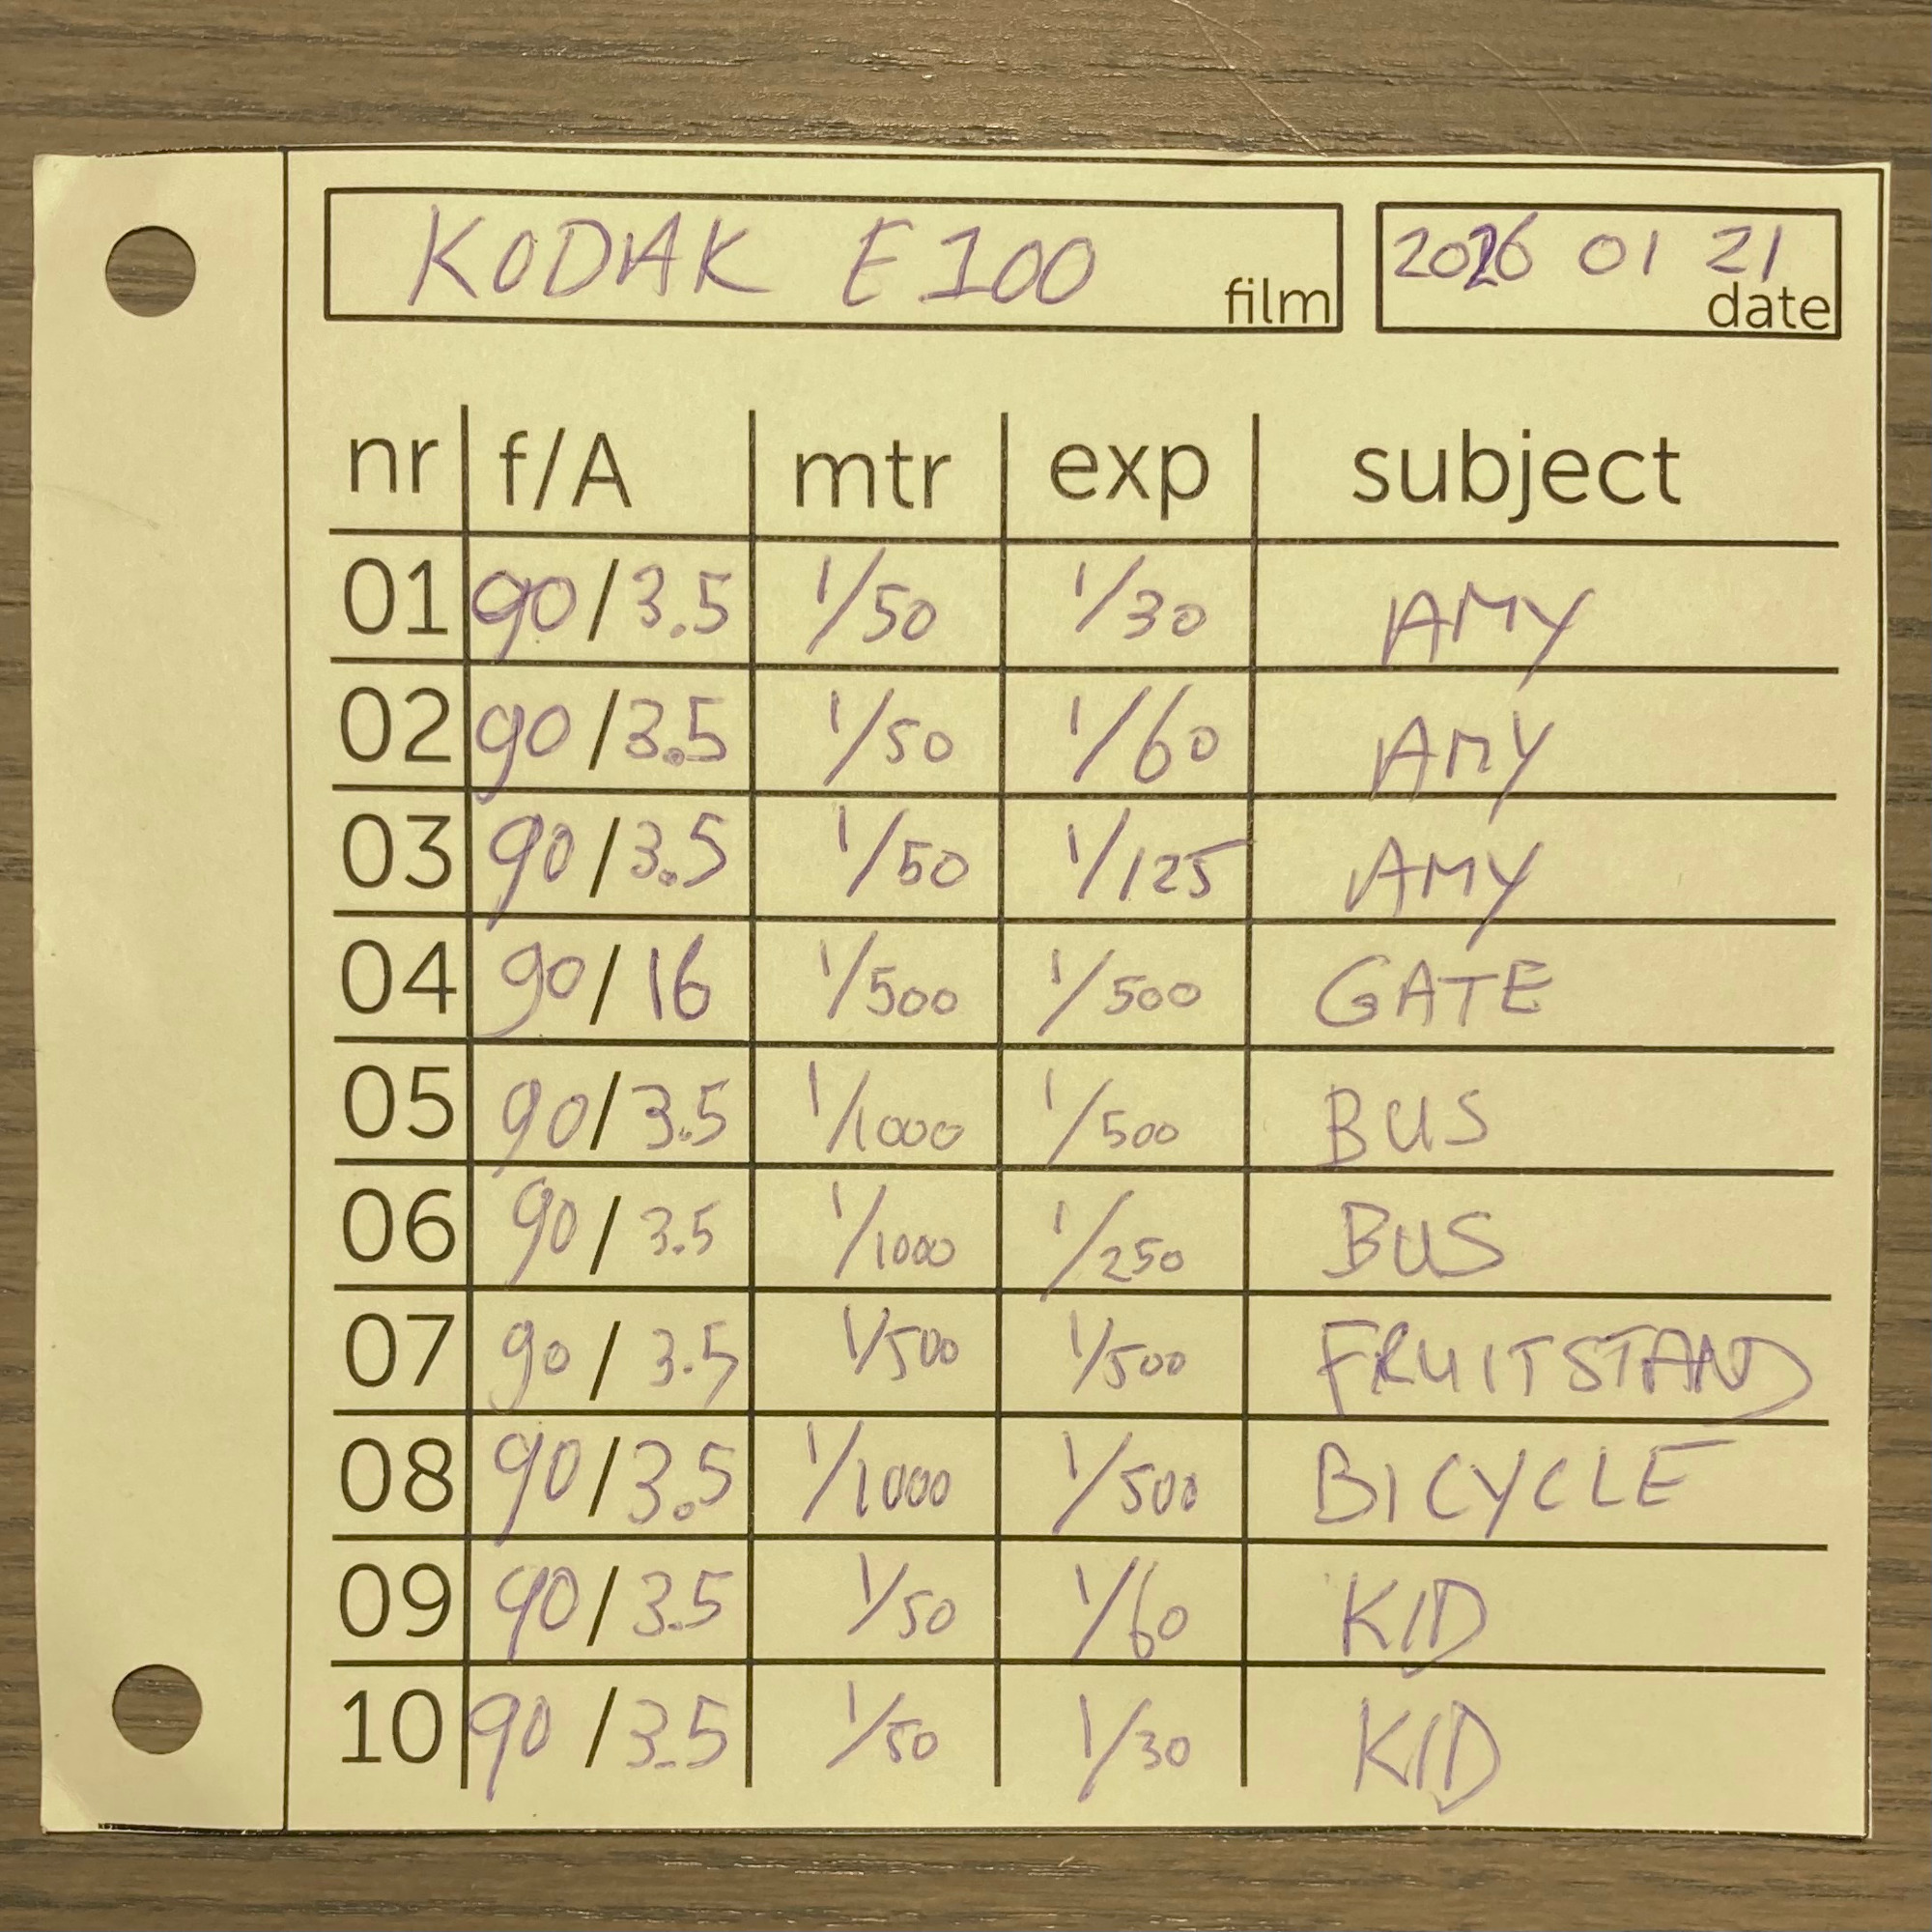 KODAK E100 film 2026 01 21 date
nr f/A mtr exp subject
01 90/3.5 1/50 1/30 AMY
02 90/3.5 1/50 1/60 AMY
03 90/3.5 1/50 1/125 AMY
04 90/16 1/500 1/500 GATE
05 90/3.5 1/1000 1/500 BUS
06 90/3.5 1/1000 1/250 BUS
07 90/3.5 1/500 1/500 FRUITSTAND
08 90/3.5 1/1000 1/500 BICYCLE
09 90/3.5 1/50 1/60 KID
10 90/3.5 1/50 1/30 KID